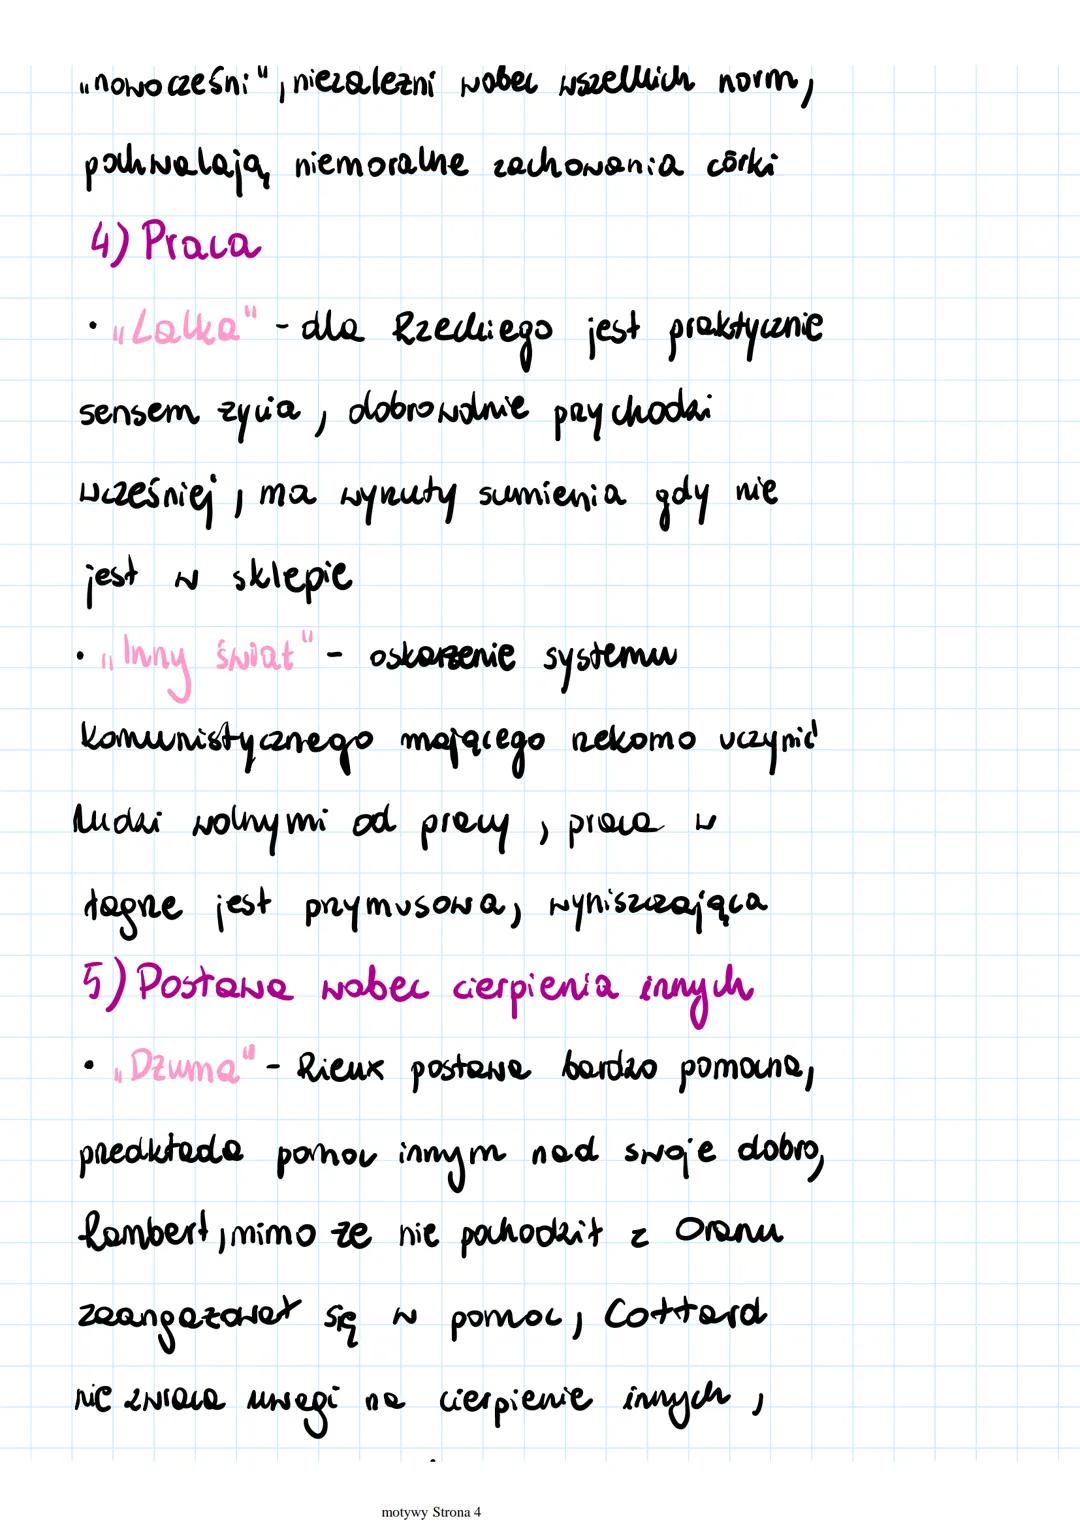 „nowocześni", niezależni wobec wszelkich norm,
pochwalają niemoralne zachowania córki
4) Praca
• „Lalka" - dla Rzeckiego jest praktycznie
sensem życia, dobrowolnie przychodzi
wcześniej, ma wyrzuty sumienia gdy nie
jest w sklepie
• „Inny świat" - oskarżenie systemu
komunistycznego mającego rzekomo uczynić
ludzi wolnymi od pracy, praca w
łagrze jest przymusowa, wyniszczająca
5) Postawa wobec cierpienia innych
• „Dżuma" - Rieux postawa bardzo pomocna,
przedkłada pomoc innym nad swoje dobro,
Rambert, mimo że nie pochodził z Oranu
zaangażował się w pomoc, Cottard
nie zwraca uwagi na cierpienie innych,
motywy Strona 4